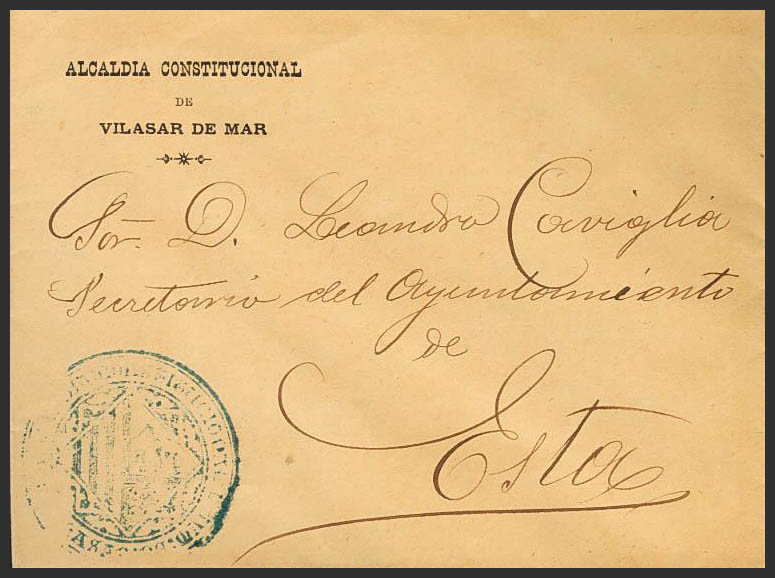 ALCALDIA CONSTITUCIONAL
DE
VILASAR DE MAR
Sor. D. Leandro Caviglia
Secretario del Ayuntamiento
de
Esta